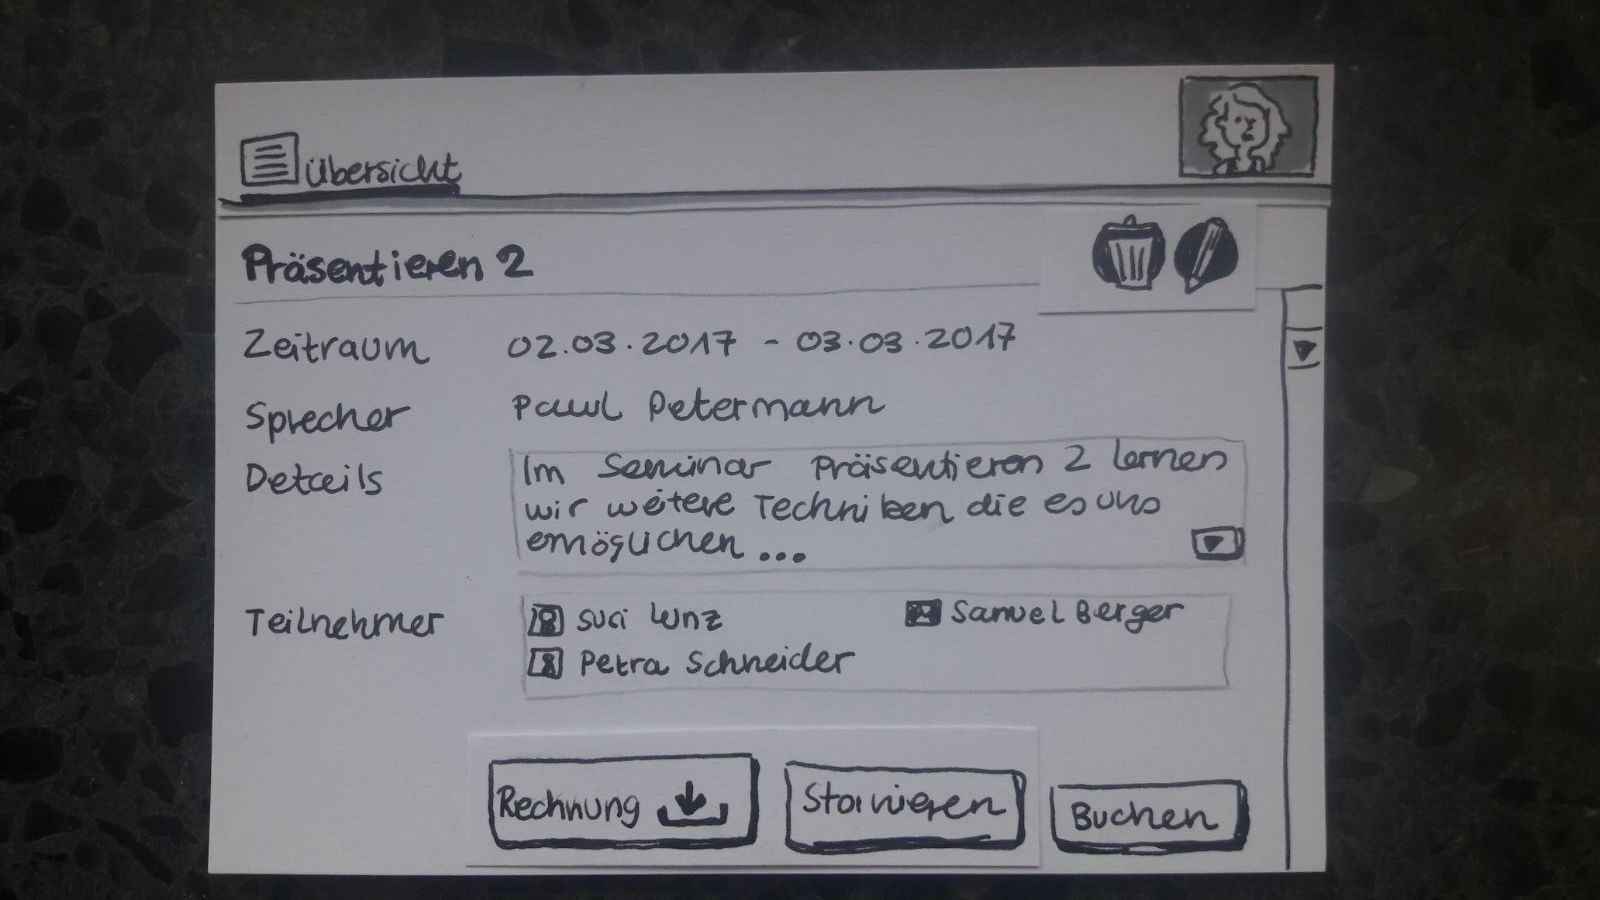 Übersicht
Präsentieren 2
Zeitraum 02.03.2017 - 03.03.2017
Sprecher Paul Petermann
Details Im Seminar Präsentieren 2 lernen
wir weitere Techniken die es uns
ermöglichen ...
Teilnehmer Susi Lunz Samuel Berger
Petra Schneider
Rechnung Stornieren Buchen